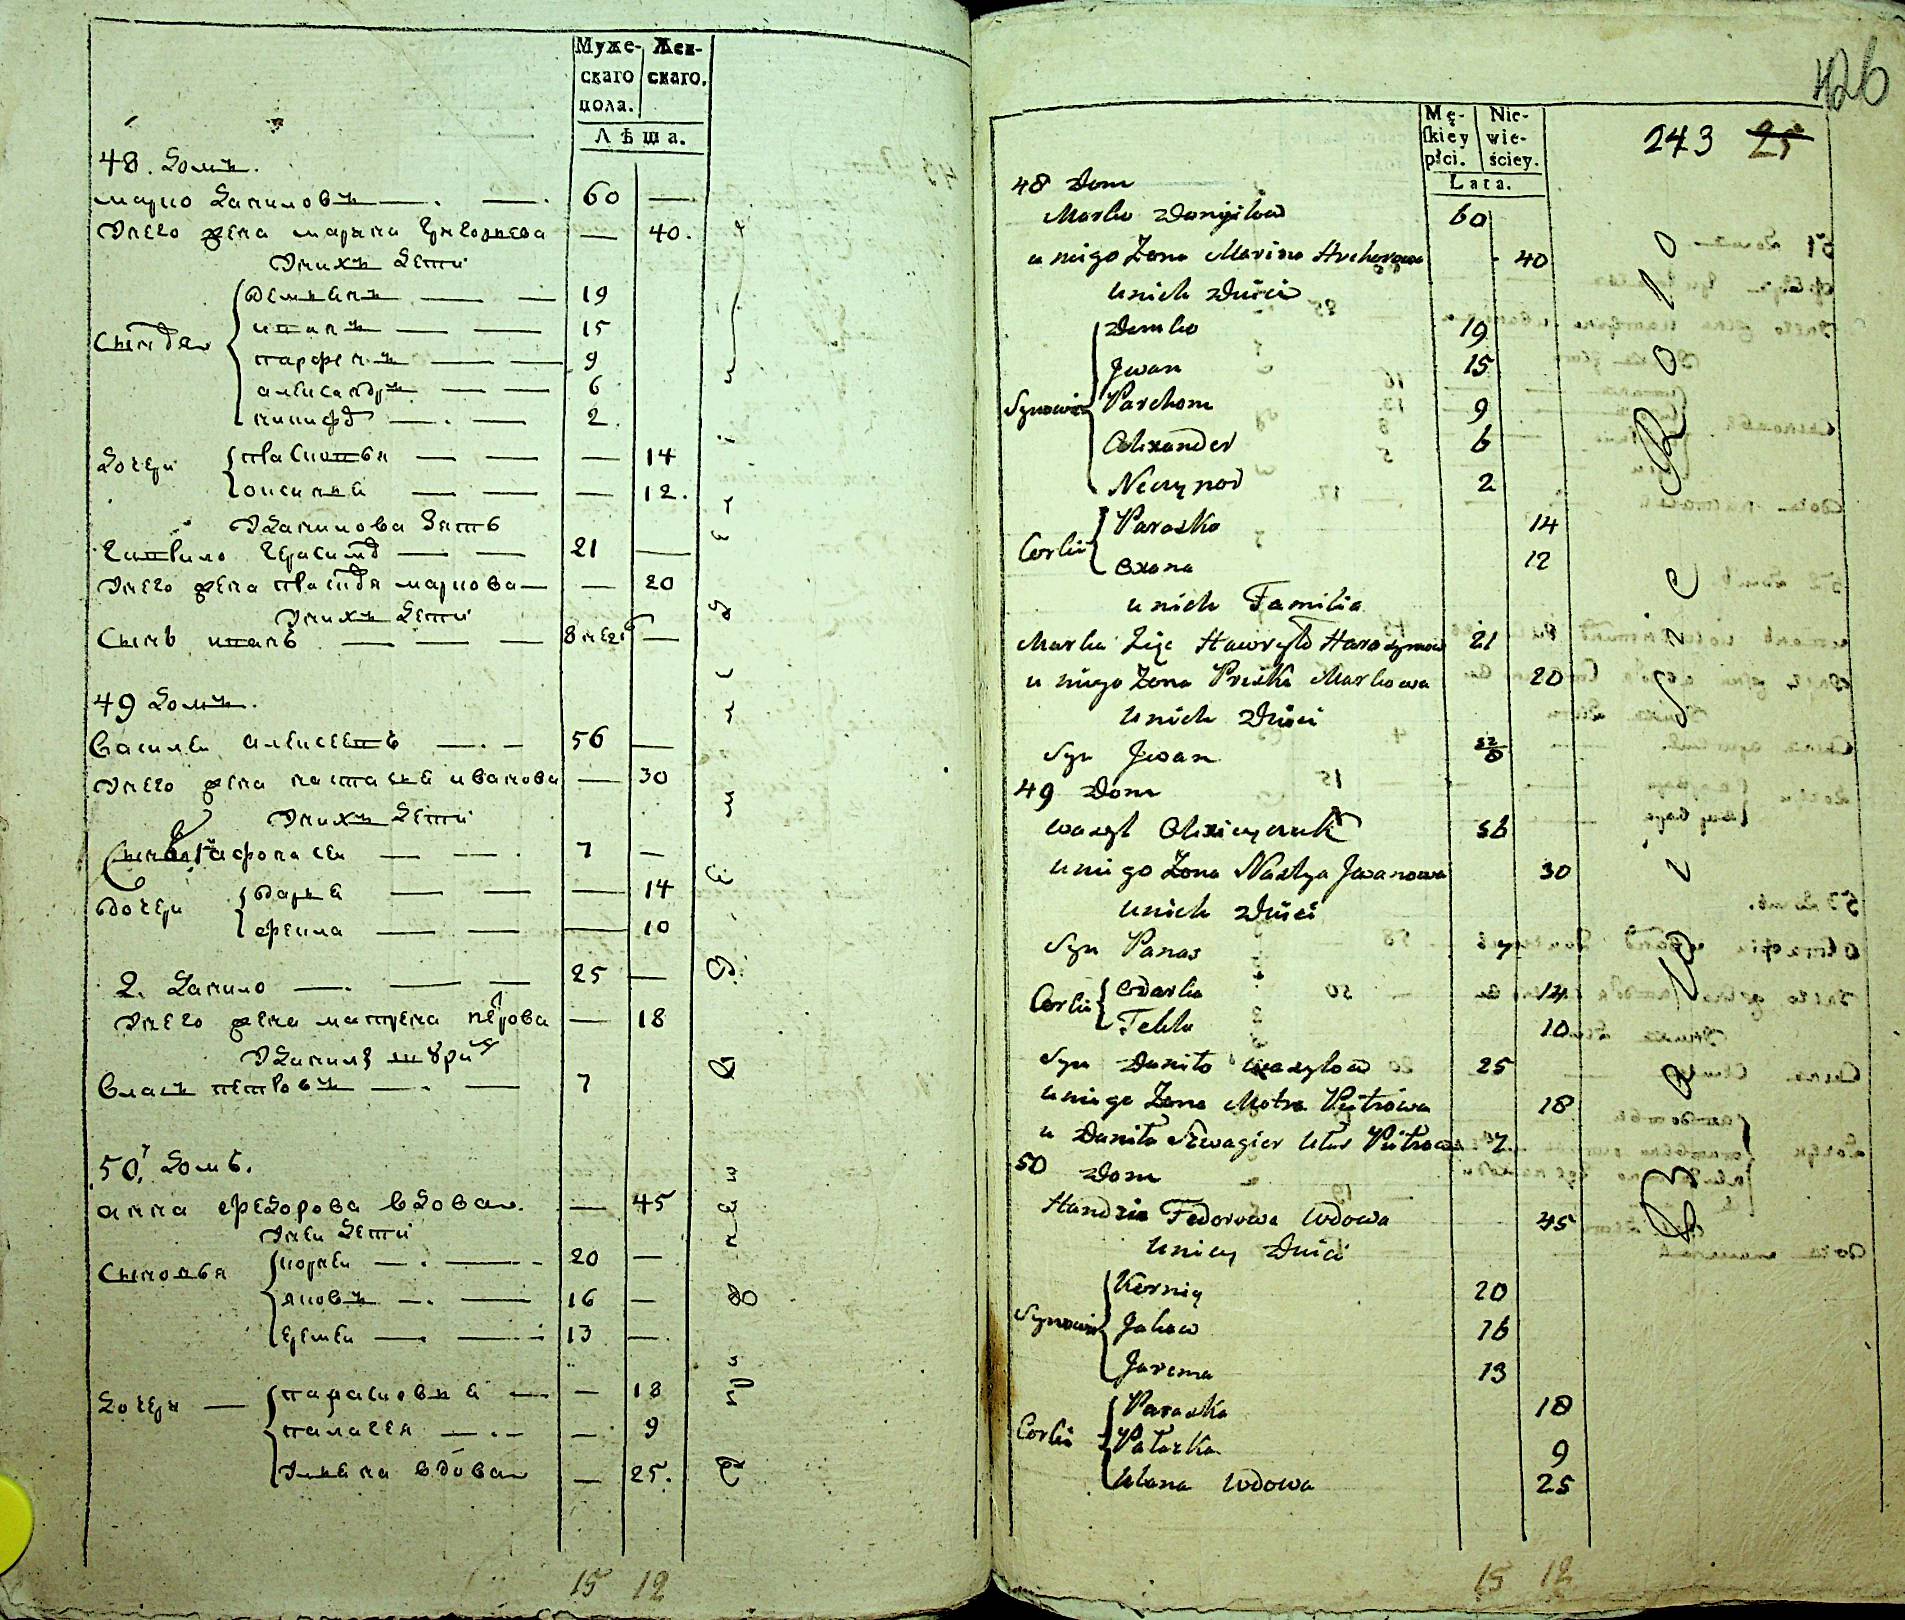 Муже- Жен-
скаго скаго.
пола.
Лѣта.
48. Домъ.
Марко Даниловъ — 60 —
Унего жена Марина Григорьева — 40.
Унихъ дети
Сыновья
Демьянъ — 19
Иванъ — 15
Парфенъ — 9
Александръ — 6
2.
Дочери
— 14
— 12.
Уданилова зять
Гаврило Герасимов — 21 —
Унего жена Маркова — 20
Унихъ дети
Сынъ Иванъ — 8 нед —
49 Домъ.
Василей Алексеевъ — 56 —
Унего жена Настасья Иванова — 30
Унихъ дети
Сынъ Афонасей — 7 —
Дочери
Дарья — 14
10
2. Данило — 25 —
Унего жена Матрена Петрова — 18
Уданилы шуринъ
Власъ Петровъ — 7
50. Домъ.
Анна Федорова вдова — 45
Унеи дети
Сыновья
Корней — 20 —
Яковъ — 16 —
Еремей — 13 —
Дочери
Парасковья — 18
Паласея — 9
Ульяна вдова — 25.
15 12
426
243 25
Mę- Nie-
skiey wie-
płci. ściey.
Lata.
48 Dom
Marko Daniłow 60
u niego Żona Marina 40
u nich Dzieci
Synowie
Demko 19
Jwan 15
Parchom 9
Olexander 6
Neczypor 2
Corki
Paraska 14
Oxana 12
u nich Familia
Marka Zięć Hawryło Harasymow 21
u niego Żona Priska Markowa 20
u nich Dzieci
Syn Jwan
49 Dom
Wasyl Olexieyczuk 56
u niego Żona Nastya Jwanowa 30
u nich Dzieci
Syn Panas 7
Corki
Odarka 14
Tekla 10
Syn Daniło Wasylow 25
u niego Żona Motra Pietrowa 18
u Daniła Szwagier Ułas Pietrow 7
50 Dom
Handzia Fedorowa Wdowa 45
u niey Dzieci
Synowie
Korniy 20
Jakow 16
Jarema 13
Corki
Paraska 18
Pałazka 9
Ulana Wdowa 25
15 12